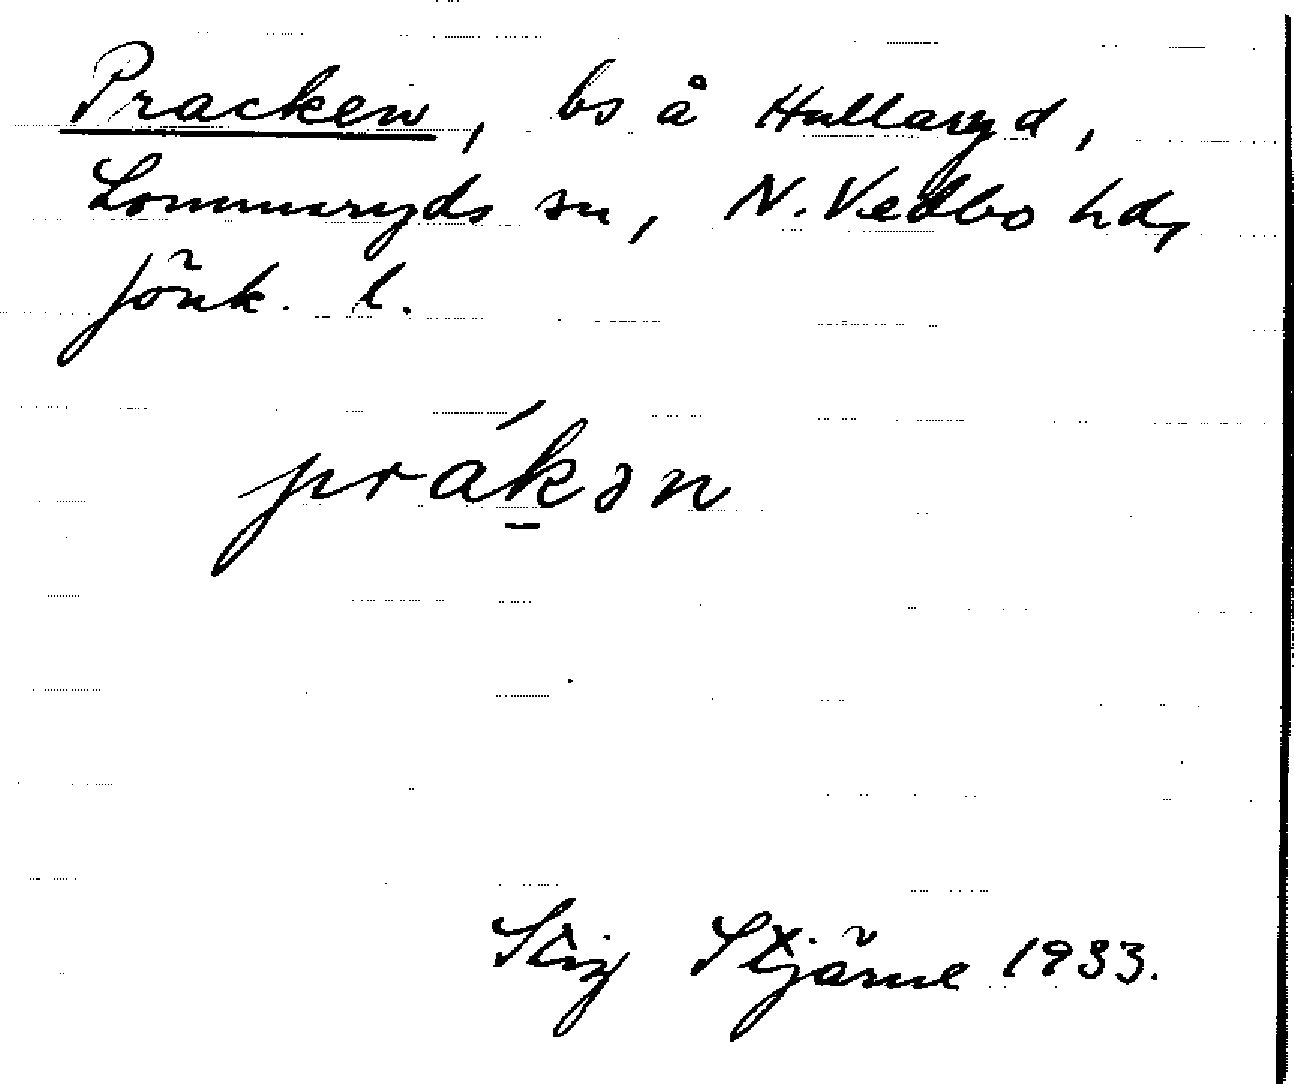 Pracken, bs å Hullaryd,
Lommaryds sn, N. Vedbo hd,
Jönk. l.
prák̲ən
Stig Stjärne 1933.